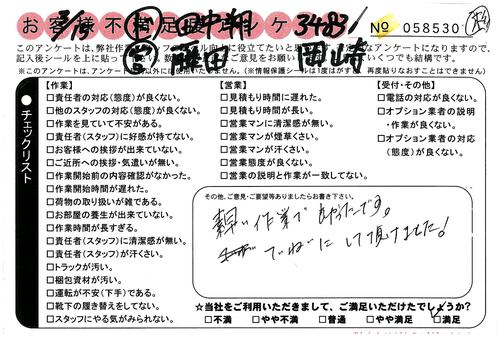 お客様不満足度アンケ
3/15 作 田中翔 34831 № 058530
営 藤田 岡山崎
このアンケートは、弊社作
記入後シールを上に貼って いくつでも結構です。
※このアンケートは、 以外には使用いたしません。(※情報保護シールは1度はがすと、再度貼りなおすことはできません)
チェックリスト
【作業】
□責任者の対応(態度)が良くない。
□他のスタッフの対応(態度)が良くない。
□作業を見ていて不安がある。
□責任者(スタッフ)に好感が持てない。
□お客様への挨拶が出来ていない。
□ご近所への挨拶・気遣いが無い。
□作業開始前の内容確認がなかった。
□作業開始時間が遅れた。
□荷物の取り扱いが雑である。
□お部屋の養生が出来ていない。
□作業時間が長すぎる。
□責任者(スタッフ)に清潔感が無い。
□責任者(スタッフ)が汗くさい。
□トラックが汚い。
□梱包資材が汚い。
□運転が不安(下手)である。
□靴下の履き替えをしてない。
□スタッフにやる気がみられない。
【営業】
□見積もり時間に遅れた。
□見積もり時間が長い。
□営業マンに清潔感が無い。
□営業マンが煙草くさい。
□営業マンが汗くさい。
□営業態度が良くない。
□営業の説明と作業が一致してない。
【受付・その他】
□電話の対応が良くない。
□オプション業者の説明
・作業が良くない。
□オプション業者の対応
(態度)が良くない。
その他、ご意見・ご要望等ありましたらお書き下さい。
早い作業で 良かったです。
ていねいにして頂けました!
☆当社をご利用いただきまして、ご満足いただけたでしょうか?
□不満 □やや不満 □普通 □やや満足 □満足